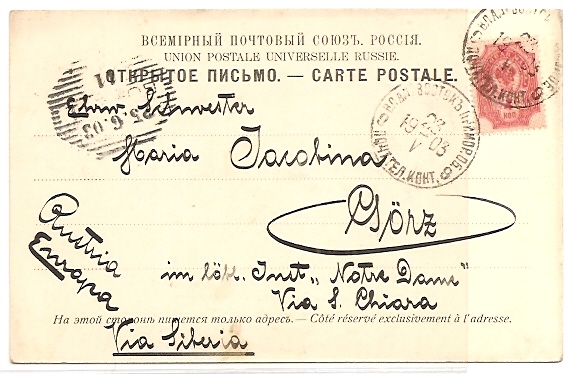 ВСЕМІРНЫЙ ПОЧТОВЫЙ СОЮЗЪ. РОССІЯ.
UNION POSTALE UNIVERSELLE RUSSIE.
ОТКРЫТОЕ ПИСЬМО. — CARTE POSTALE.
Ehrw. Schwester
Maria Jacobina
Görz
im löbl. Inst „Notre Dame"
Via S. Chiara
Austria
Europa
На этой сторонѣ пишется только адресъ. — Côté réservé exclusivement à l'adresse.
Via Siberia
25.6.03
ВОСТОКЪ
23
1903
V
ТЕЛ. КОНТ.